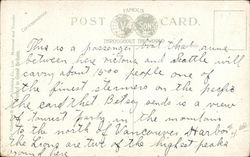 FAMOUS
POST CARD.
THROUGHOUT THE WORLD
This is a passenger boat that runs
between here victoria and Seattle will
carry about 1500 people one of
the finest steamers on the pacific
the card that Betsey sends is a view
of Tourist party in the mountains
to the north of Vancouver Harbour
the Lions are two of the highest peaks
round here